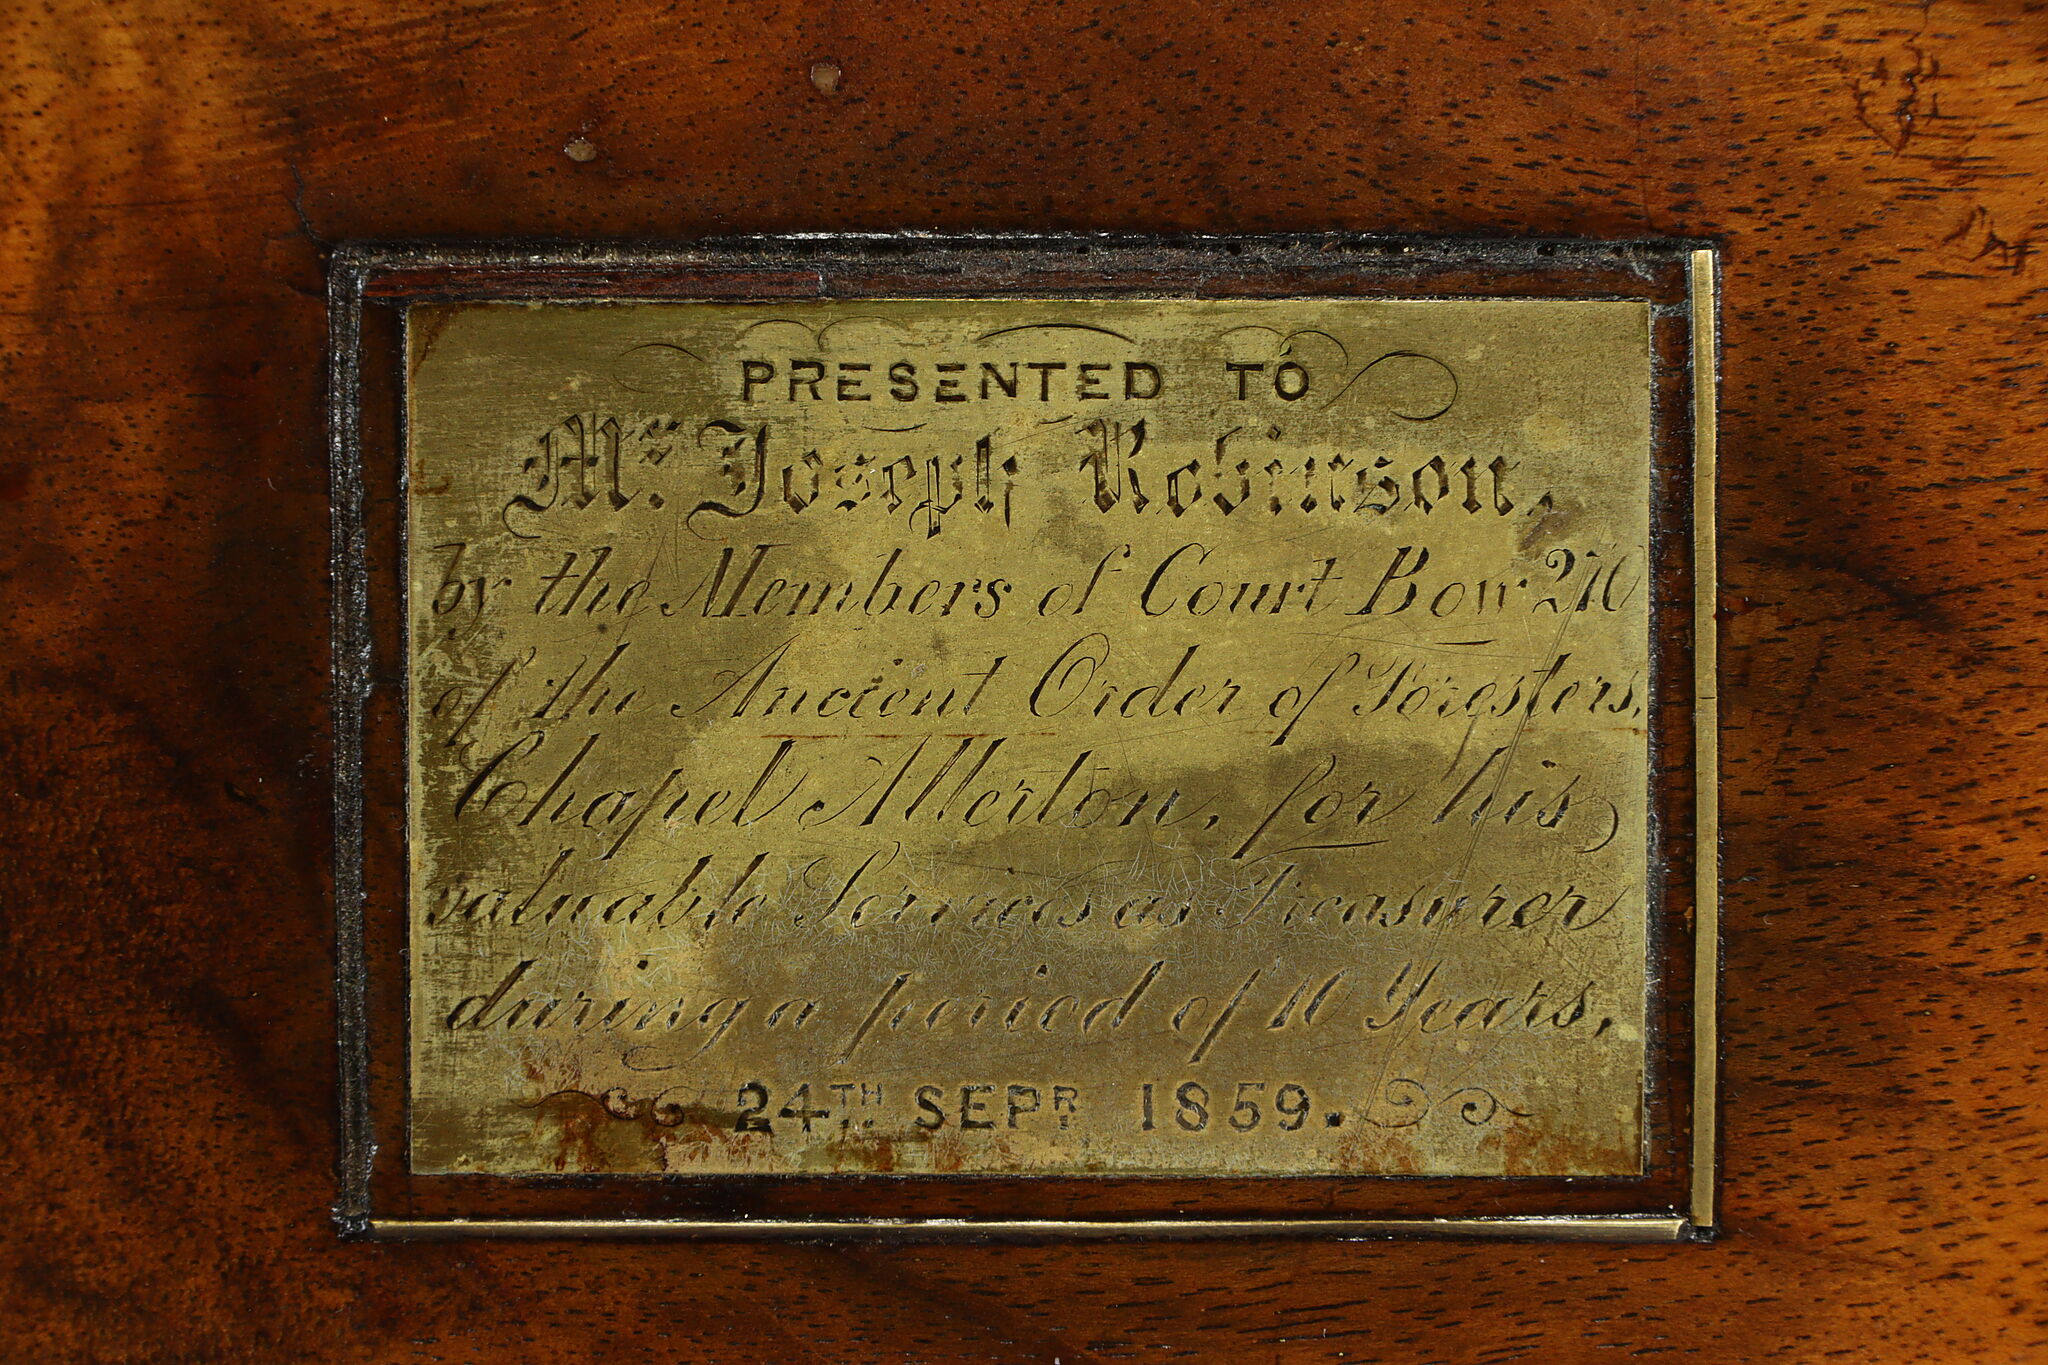 PRESENTED TO
Mr. Joseph Robinson,
by the Members of Court Bow 210
of the Ancient Order of Foresters,
Chapel Allerton, for his
valuable Services as Treasurer
during a period of 10 Years,
24TH SEPR 1859.